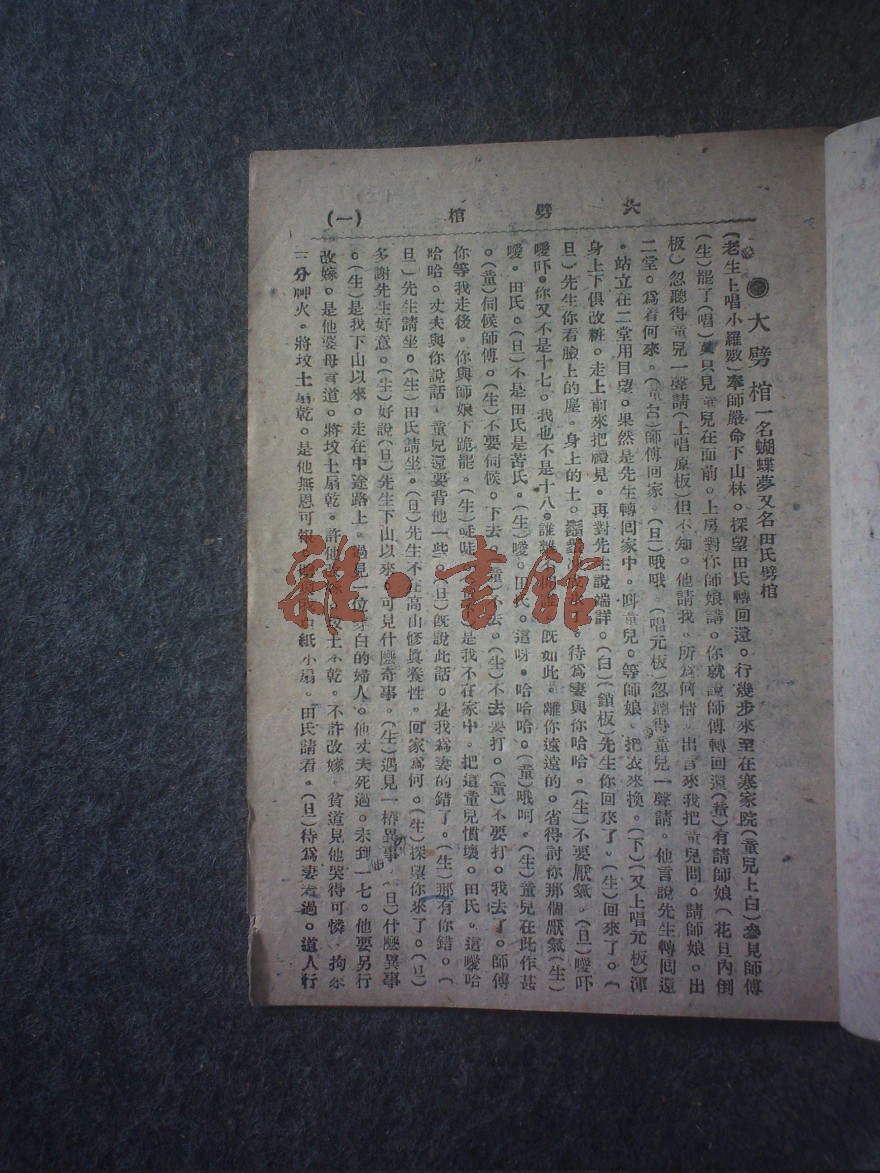 大劈棺 (一)
大劈棺一名蝴蝶夢又名田氏劈棺
(老生上唱小羅數)奉師嚴命下山林。探望田氏轉回還。行幾步來至在寒家院(童兒上白)參見師傅
(生)罷了(唱)只見童兒在面前。上房對你師娘講。你就說師傅轉回還(童)有請師娘(花旦內倒
板)忽聽得童兒一聲請(上唱原板)但不知。他請我。所為何情。出言來我把童兒問。請師娘。出
二堂。為着何來。(童白)師傅回家。(旦)哦哦。(唱元板)忽聽得童兒一聲請。他言說先生轉回還
。站立在二堂用目望。果然是先生轉回家中。叫童兒。等師娘。把衣來換。(下)(又上唱元板)渾
身上下俱改粧。走上前來把禮見。再對先生說端詳。(白)(鎖板)先生你回來了。(生)回來了。(
旦)先生你看臉上的塵。身上的土。待為妻與你哈哈。(生)不要厭氣。(旦)噯吓
噯吓。你又不是十七。我也不是十八。誰 既如此。離你遠遠的。省得討你那個厭氣(生)
噯。田氏。(旦)不是田氏是苦氏。(生)噯。田氏。這呀。哈哈哈。(童)哦呵。(生)童兒在此作甚
。(童)伺候師傅。(生)不要伺候。下去。(童)不去。(生)不去要打。(童)不要打。我去了。師傅
你等我走後。你與師娘下跪罷。(生) 是我不在家中。把這童兒慣壞。田氏。這噯哈
哈哈。丈夫與你說話。童兒還要背他一些。(旦)既說此話。是我為妻的錯了。(生)那有你錯。(
旦)先生請坐。(生)田氏請坐。(旦)先生不在高山修眞養性。回家為何。(生)探望你來了。(旦)
多謝先生好意。(生)好說(旦)先生下山以來。可見什麼奇事。(生)遇見一樁異事。(旦)什麼異事
。(生)是我下山以來。走在中途路上。遇見一位穿白的婦人。他丈夫死過。未到一七。他要另行
改嫁。是他婆母言道。將坟土扇乾。許他改嫁。坟土不乾。不許改嫁。貧道見他哭得可憐。拘來
三分神火。將坟土扇乾。是他無恩可報。 紙小扇。田氏請看。(旦)待為妻看過。道人行
雜·書館